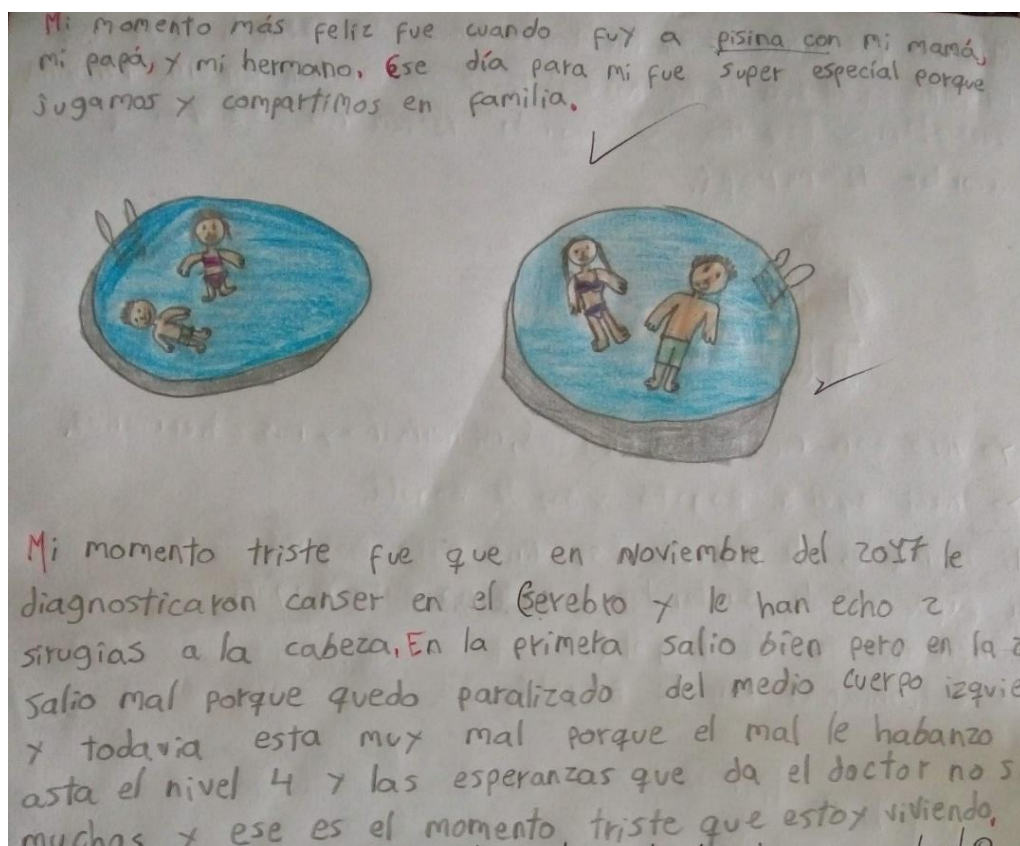 Mi momento más feliz fue cuando fuy a pisina con mi mamá,
mi papá, y mi hermano. Ese día para mi fue super especial porque
jugamos y compartimos en familia.
Mi momento triste fue que en Noviembre del 2017 le
diagnosticaron canser en el Cerebro y le han echo 2
sirugias a la cabeza, En la primera salio bien pero en la 2
salio mal porque quedo paralizado del medio cuerpo izquie
y todavia esta muy mal porque el mal le habanzo
asta el nivel 4 y las esperanzas que da el doctor no s
muchas y ese es el momento triste que estoy viviendo.